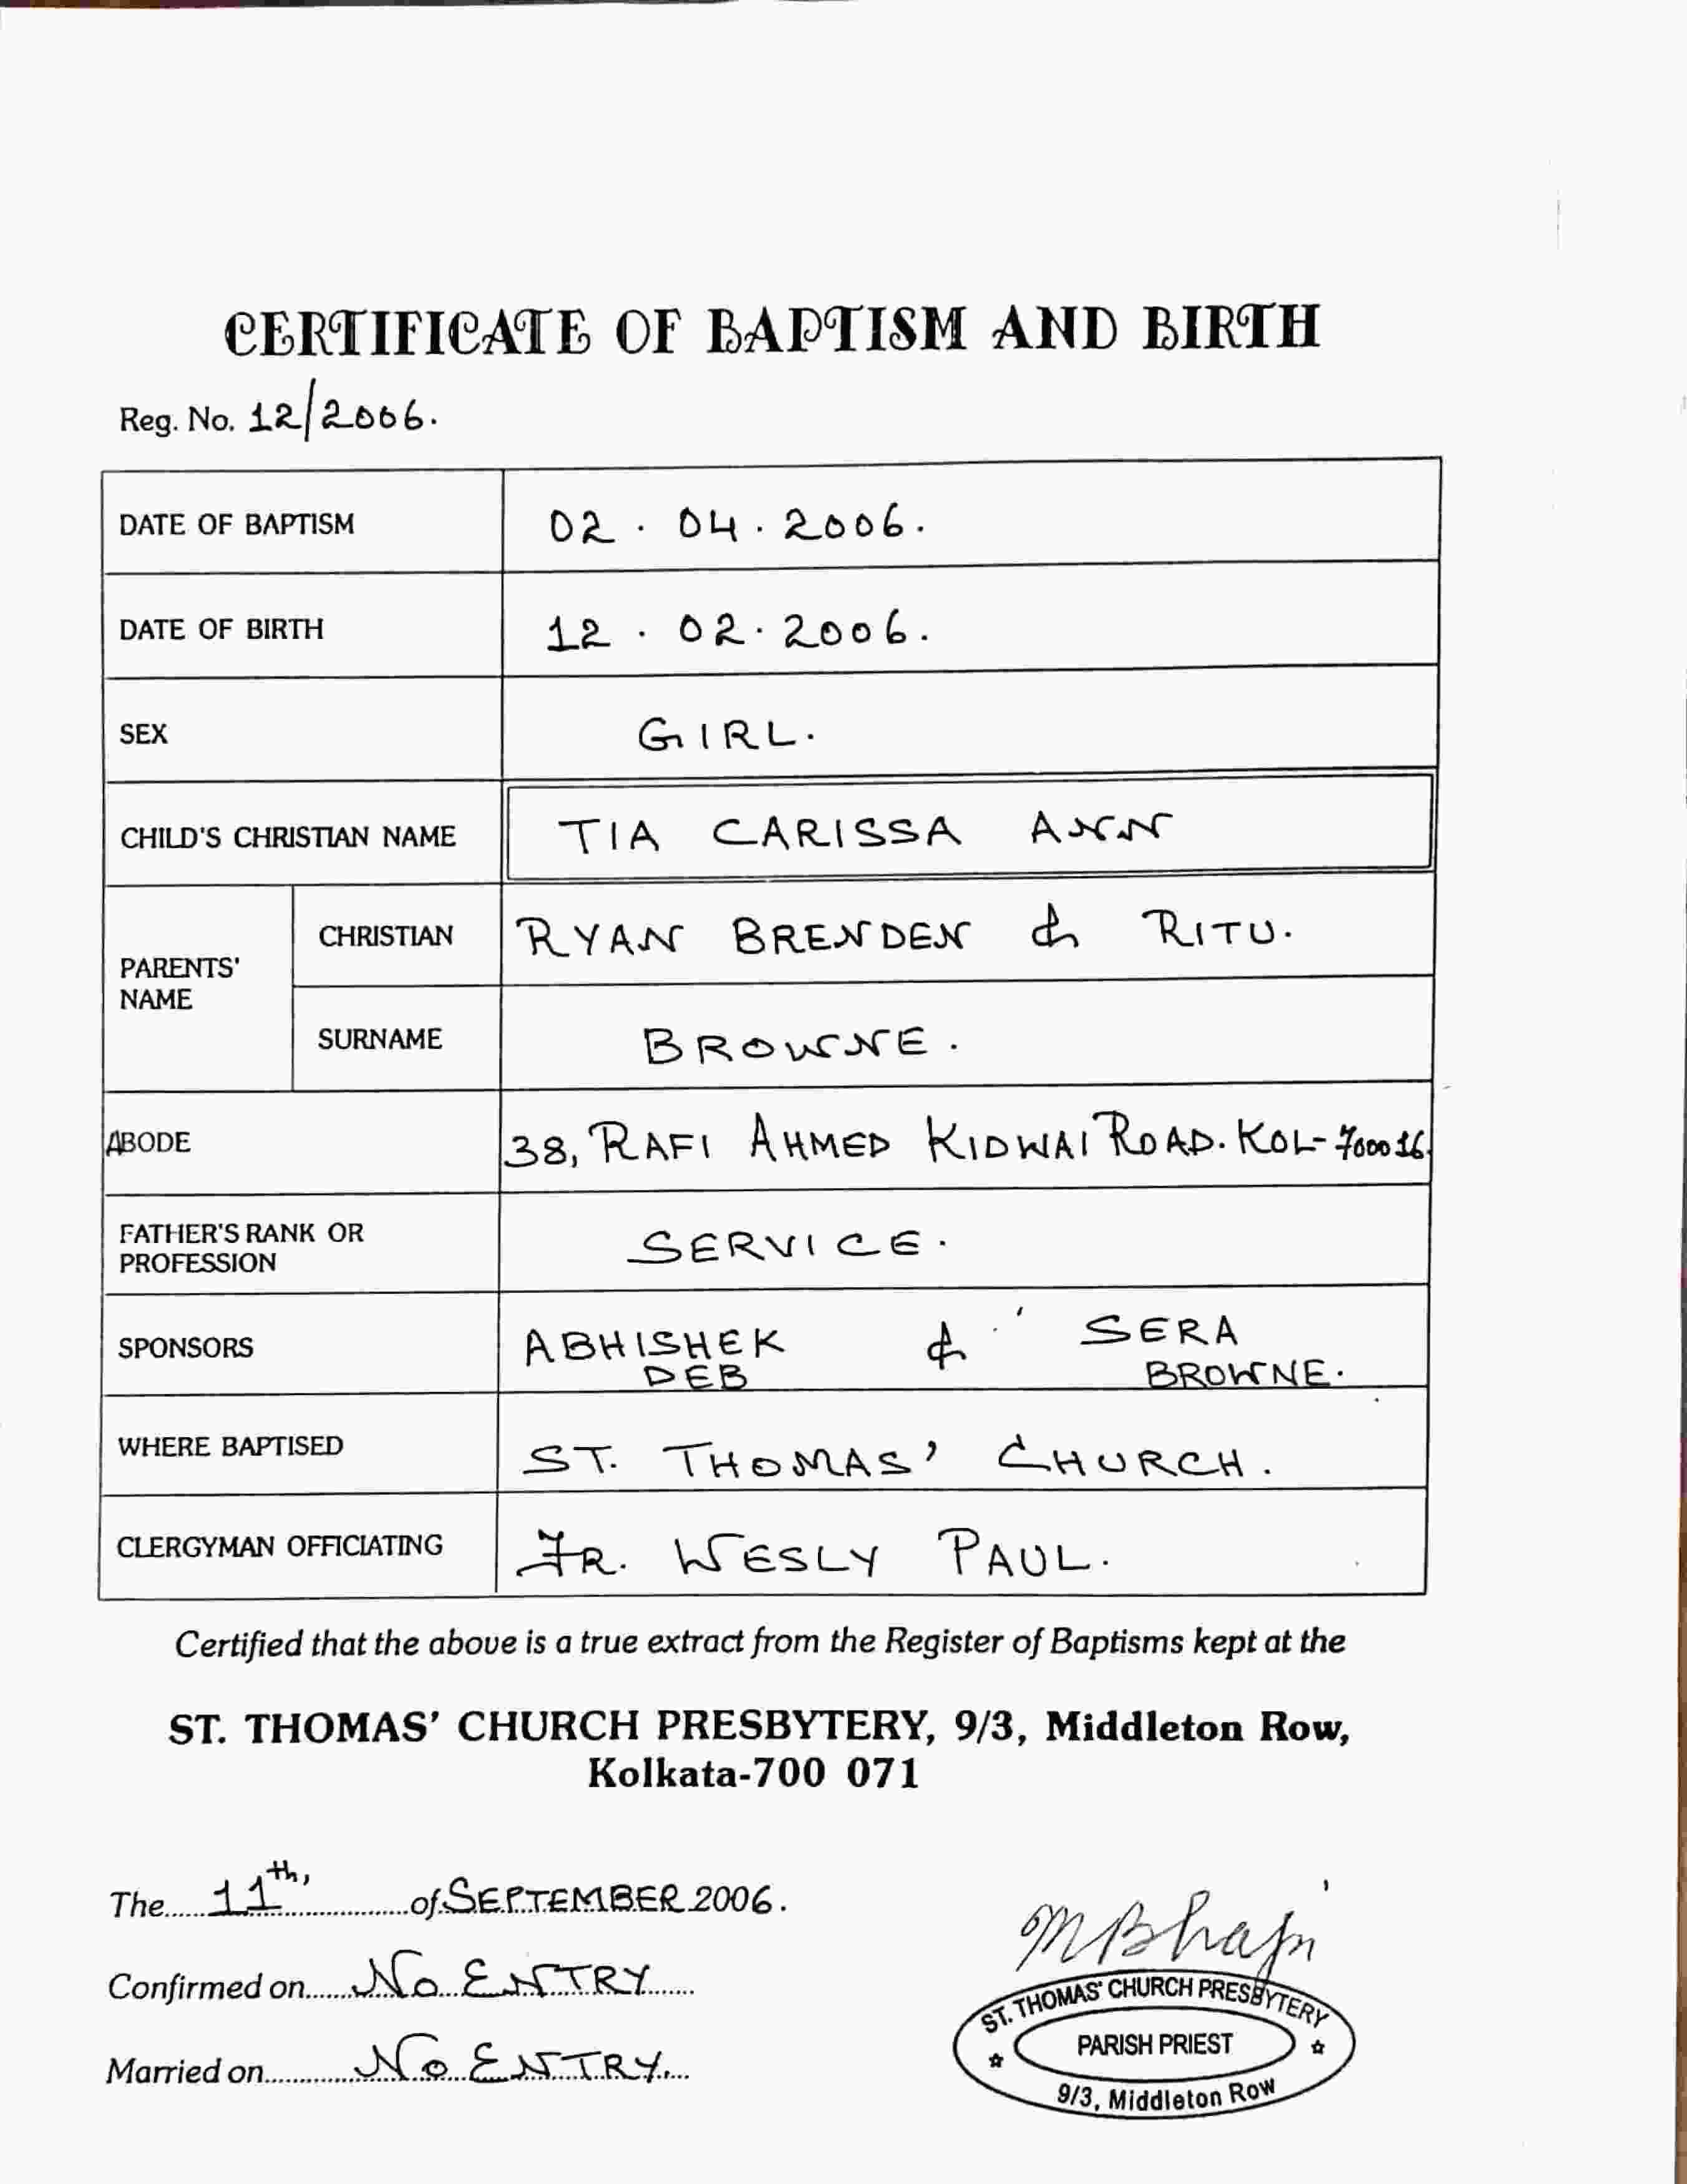 CERTIFICATE OF BAPTISM AND BIRTH
Reg. No. 12/2006.
DATE OF BAPTISM 02.04.2006.
DATE OF BIRTH 12.02.2006.
SEX GIRL.
CHILD'S CHRISTIAN NAME TIA CARISSA ANN
PARENTS' NAME CHRISTIAN RYAN BRENDEN & RITU.
SURNAME BROWNE.
ABODE 38, RAFI AHMED KIDWAI ROAD. KOL-700016.
FATHER'S RANK OR PROFESSION SERVICE.
SPONSORS ABHISHEK DEB & SERA BROWNE.
WHERE BAPTISED ST. THOMAS' CHURCH.
CLERGYMAN OFFICIATING FR. WESLY PAUL.
Certified that the above is a true extract from the Register of Baptisms kept at the
ST. THOMAS' CHURCH PRESBYTERY, 9/3, Middleton Row,
Kolkata-700 071
The 11th, of SEPTEMBER 2006.
Confirmed on NO ENTRY
Married on NO ENTRY
ST. THOMAS' CHURCH PRESBYTERY
PARISH PRIEST
9/3, Middleton Row